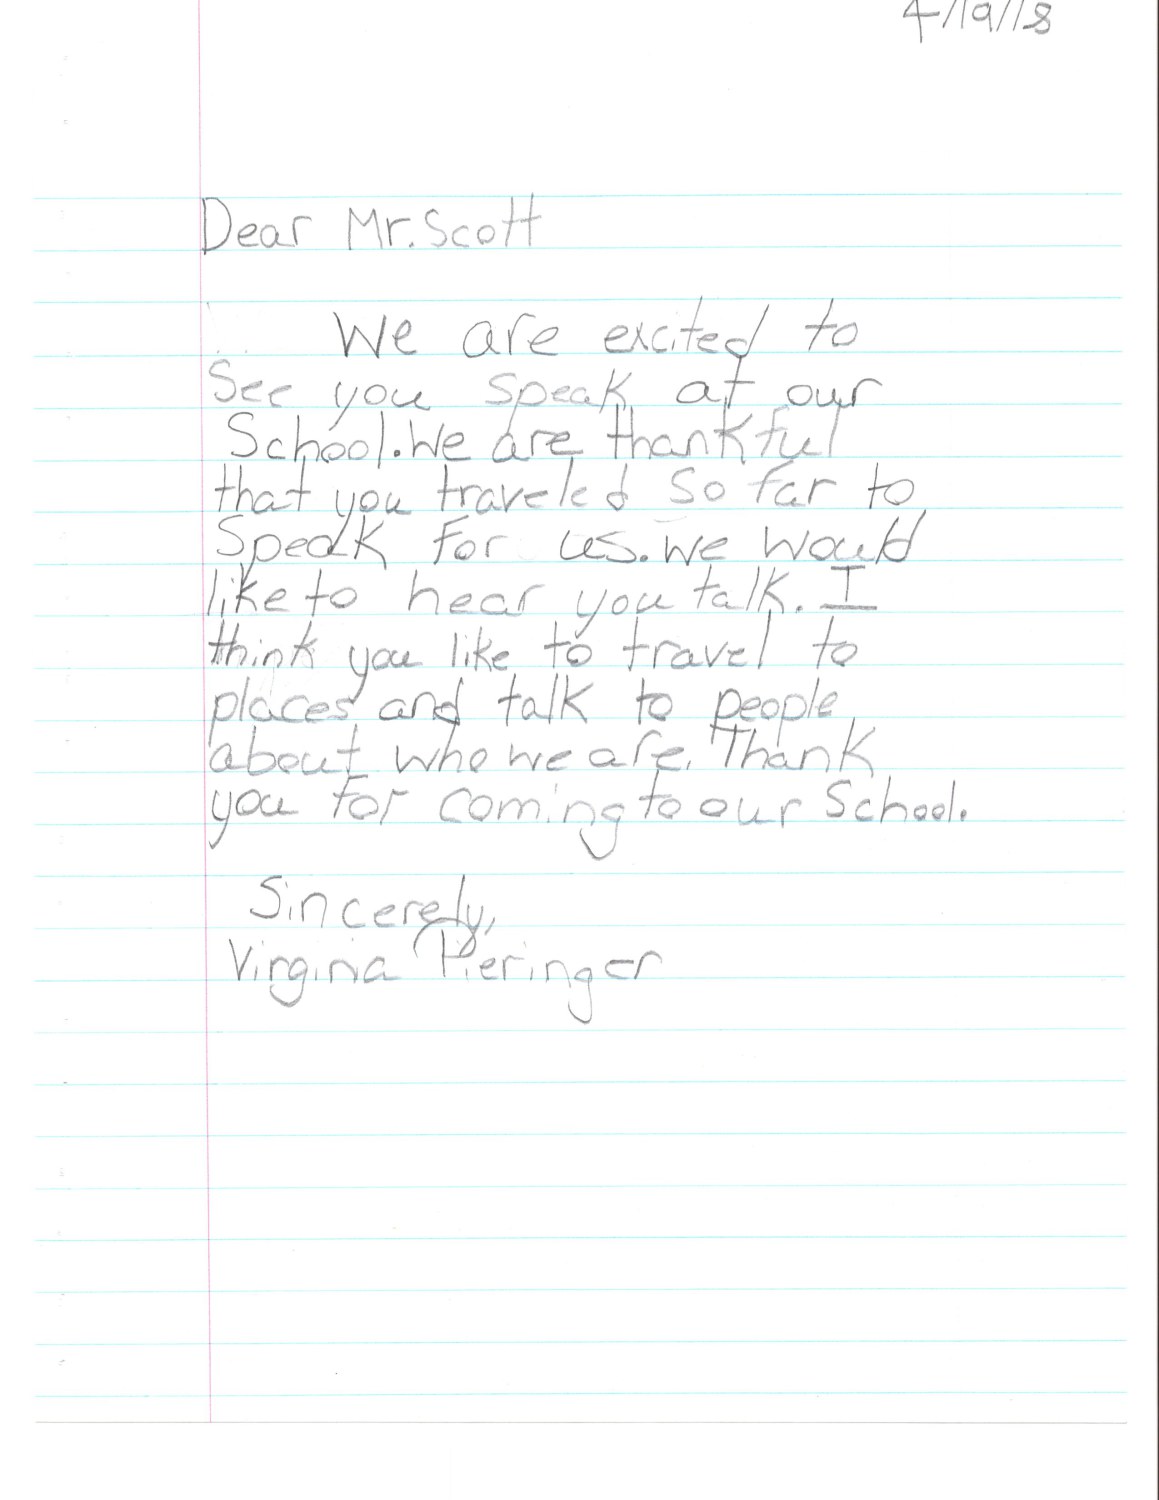 4/19/18
Dear Mr. Scott
We are excited to
See you speak at our
School. We are thankful
that you traveled So far to
Speak For us. We would
like to hear you talk. I
think you like to travel to
places and talk to people
about who we are. Thank
you For coming to our School.
Sincerely,
Virginia Pieringer